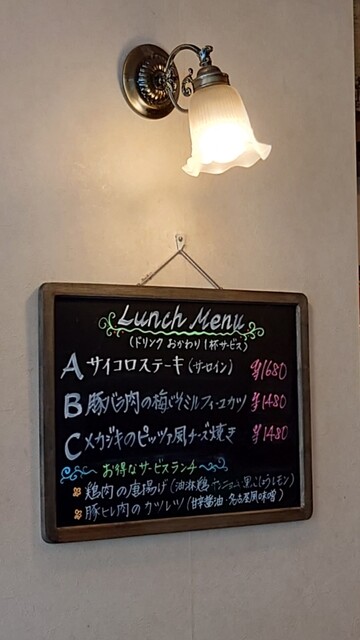 Lunch Menu
(ドリンク おかわり1杯サービス)
A サイコロステーキ(サーロイン) ¥1680
B 豚バラ肉の梅じそミルフィーユカツ ¥1480
C メカジキのピッツァ風チーズ焼き ¥1480
お得なサービスランチ
鶏肉の唐揚げ(油淋鶏・黒こしょうレモン)
豚ヒレ肉のカツレツ(甘辛醤油・名古屋風味噌)